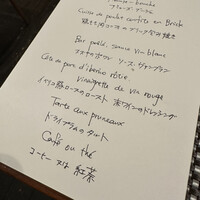 Cuisse de poulet confite en Brick
Bar poêlé, sauce vin blanc
スズキのポワレ ソース・ヴァンブラン
Coq de porc d'ibérico rôti,
vinaigrette de vin rouge
イベリコ豚ロースのロースト 赤ワインのドレッシング
Tarte aux pruneaux
ドライプラムのタルト
Café ou thé
コーヒー 又は 紅茶